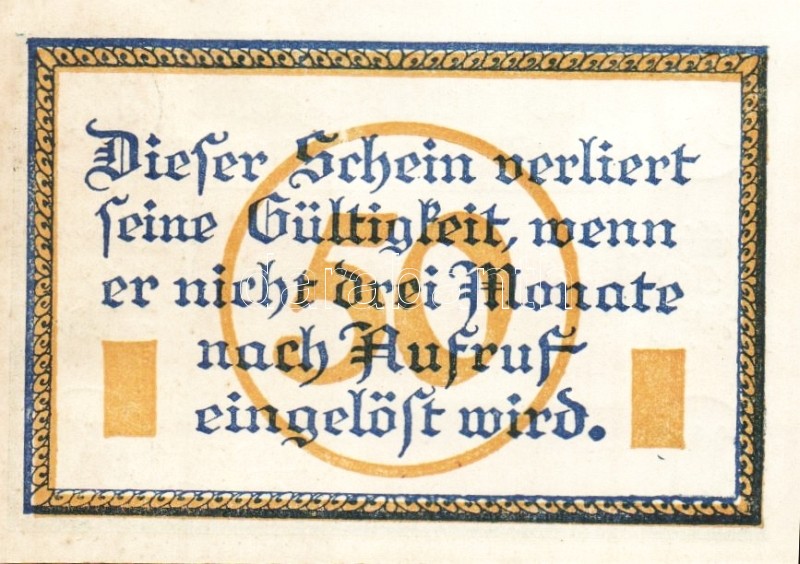 Dieser Schein verliert
seine Gültigkeit, wenn
er nicht drei Monate
nach Aufruf
eingelöst wird.
50